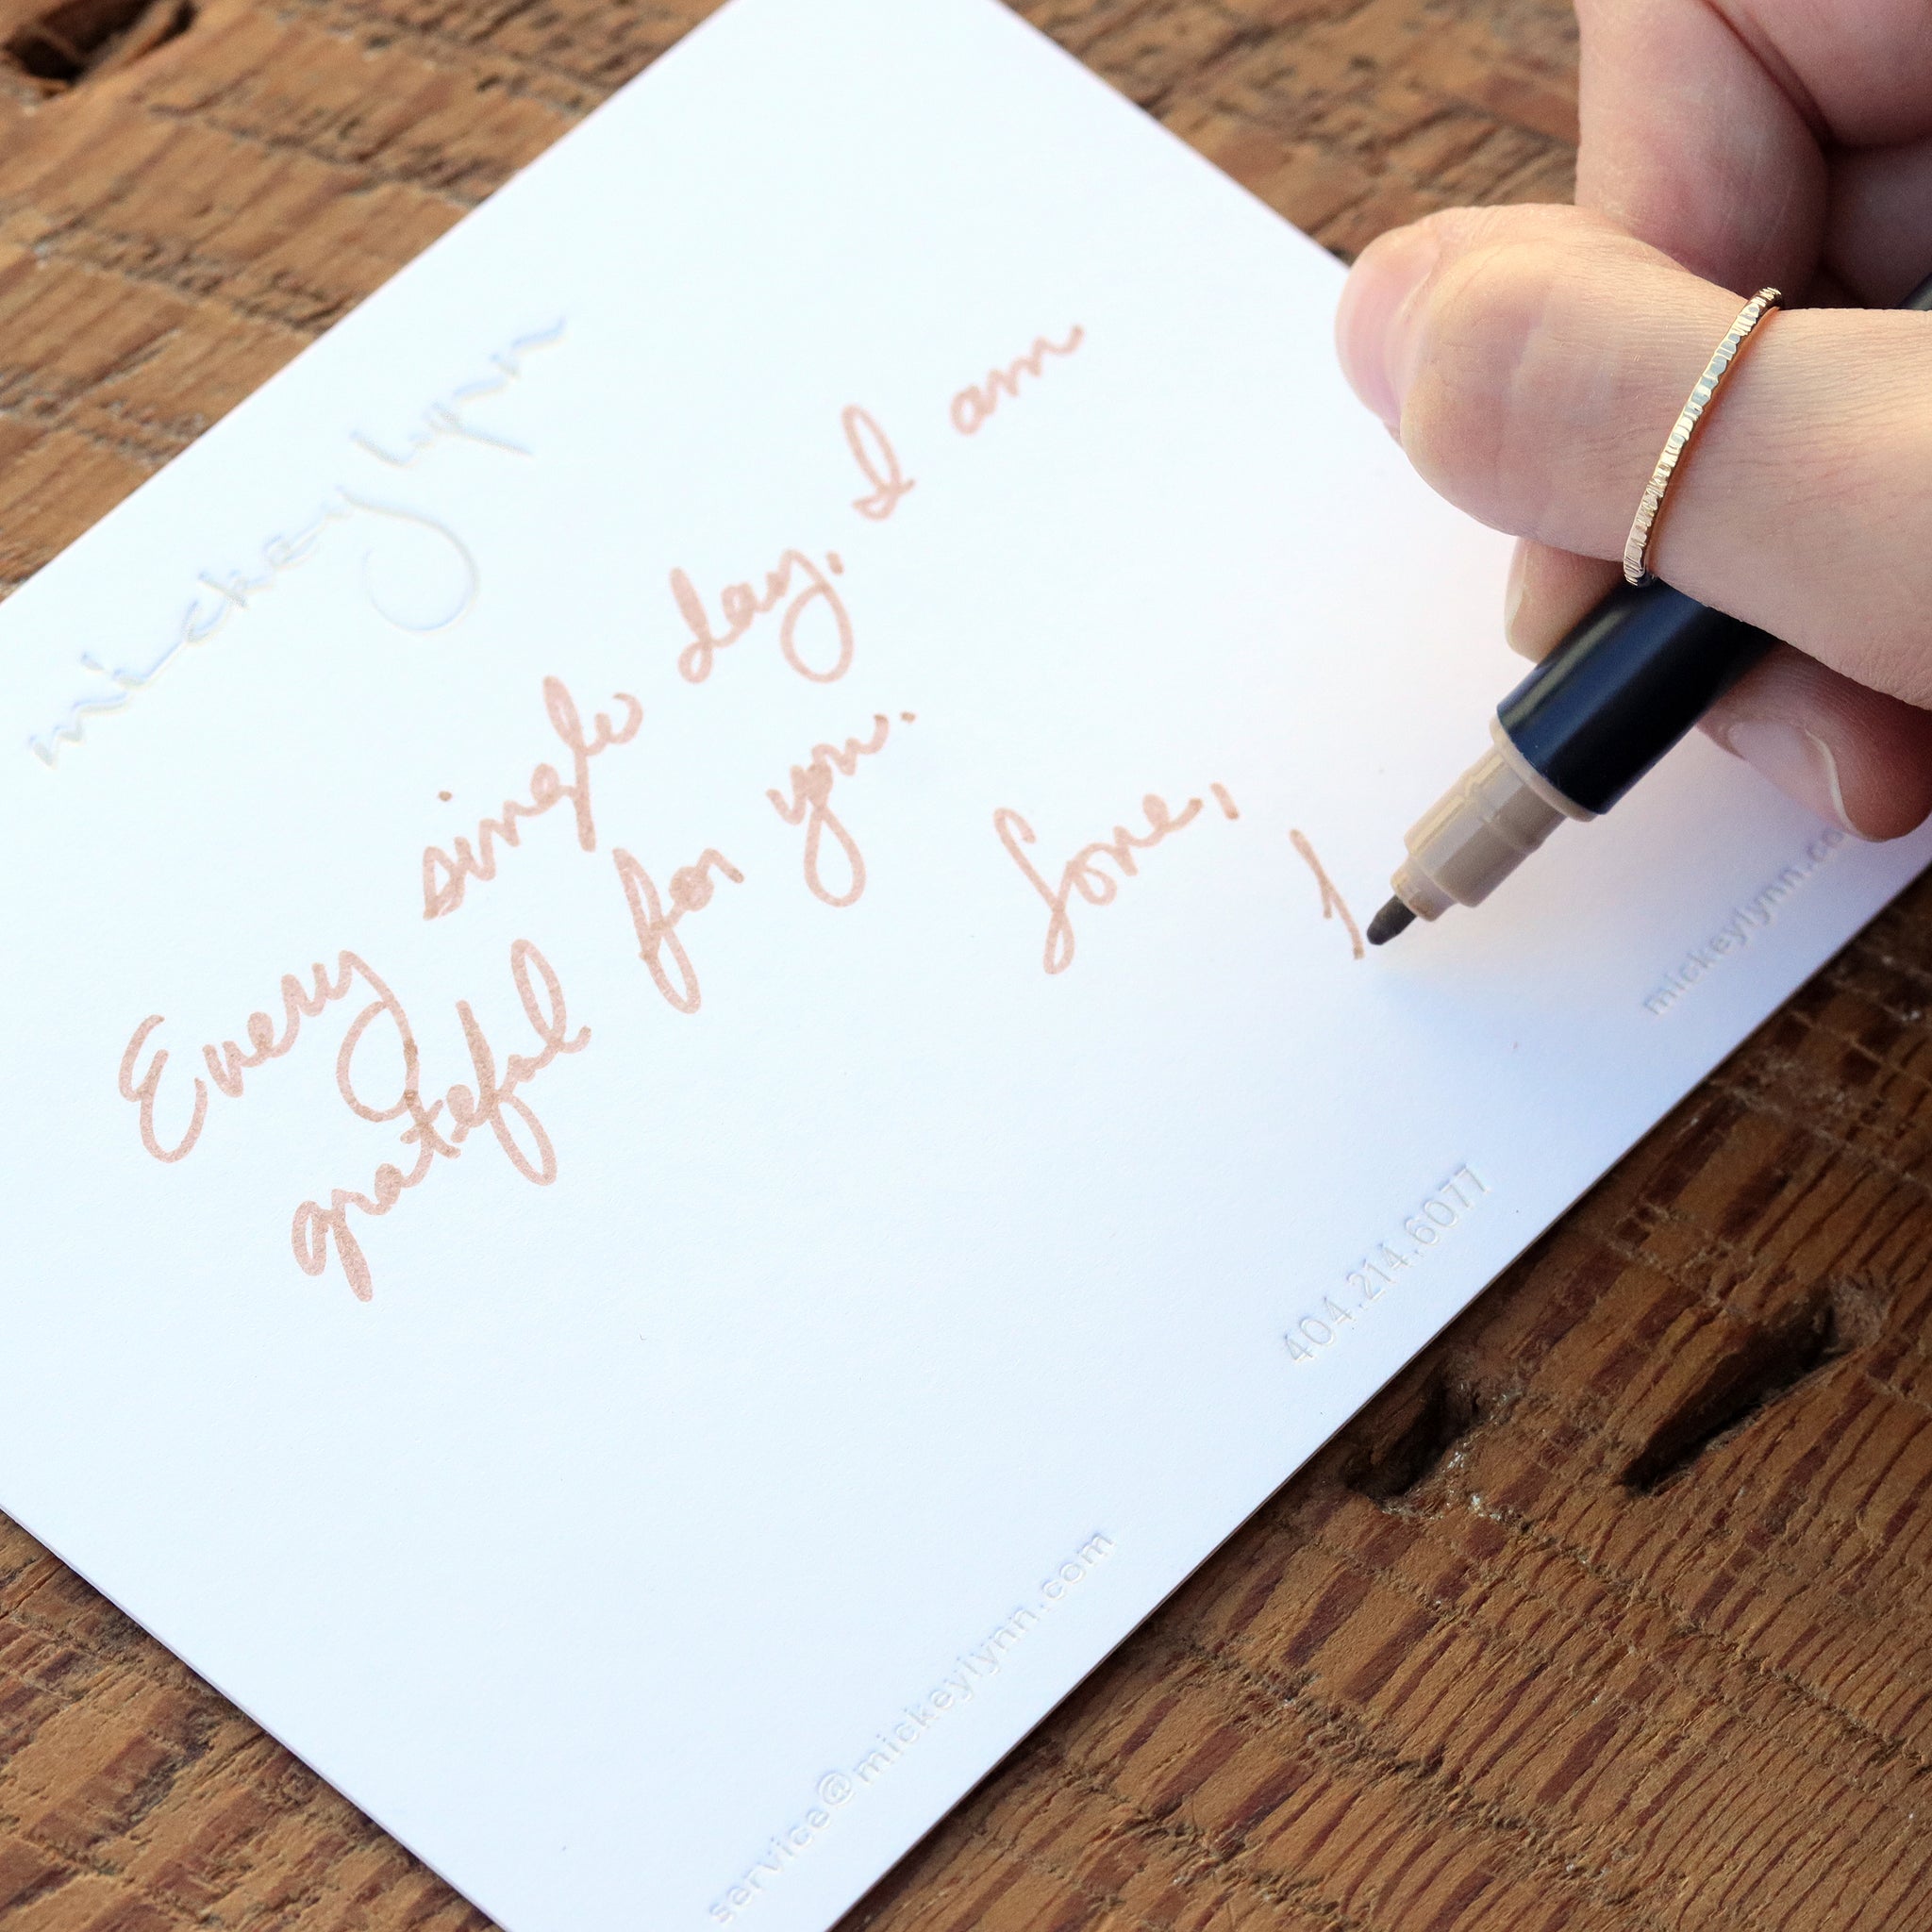 mickey lynn
Every single day, I am
grateful for you.
Love,
service@mickeylynn.com
404.214.6077
mickeylynn.co